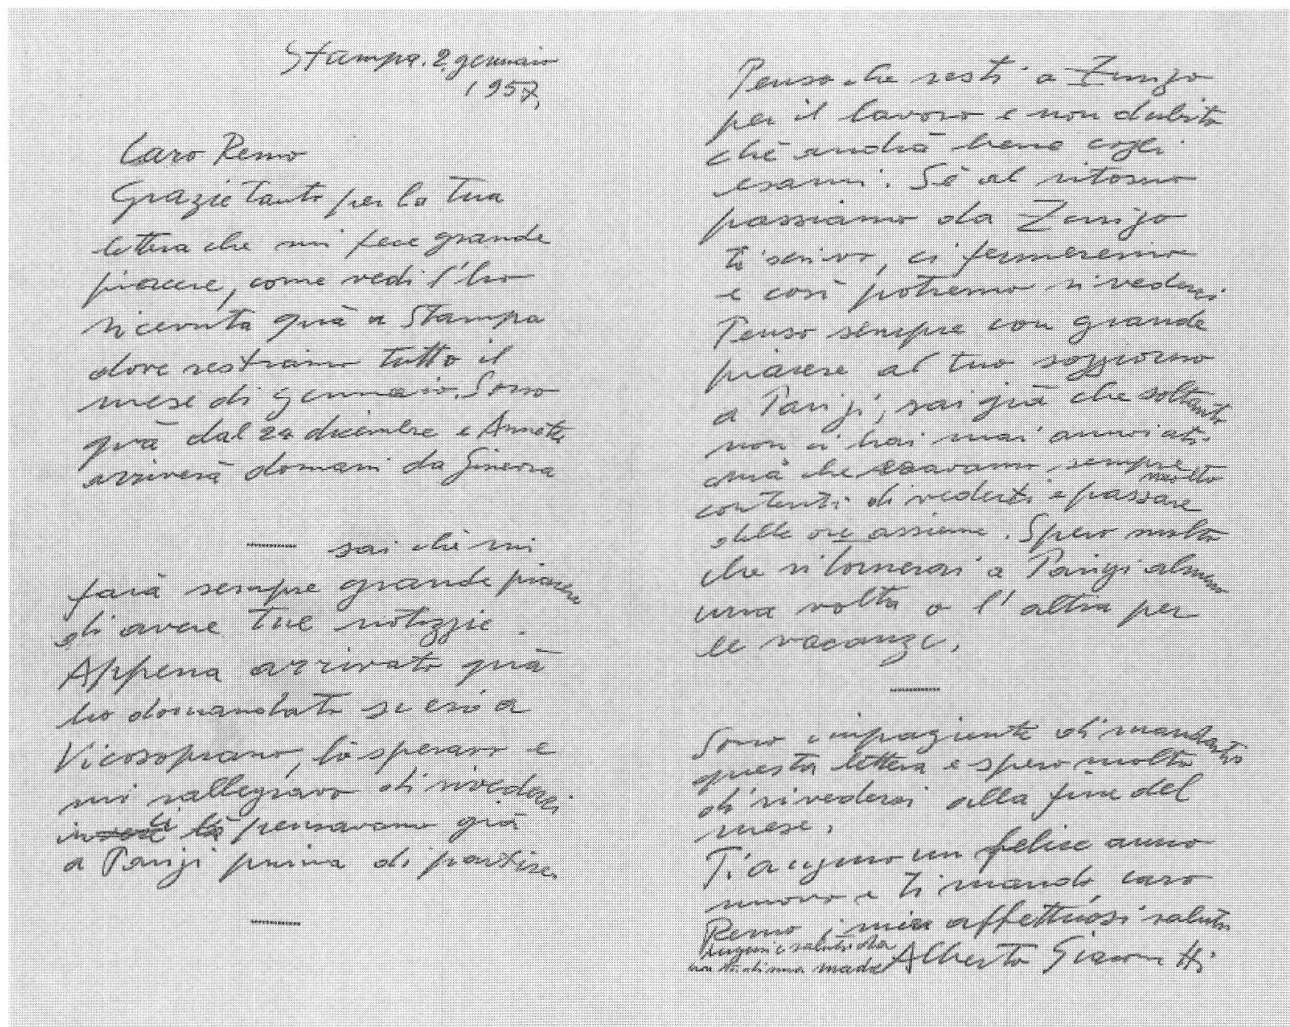 Stampa. 2. gennaio
1957,
Caro Remo
Grazie tanto per la tua
lettera che mi fece grande
piacere, come vedi l'ho
ricevuta quà a Stampa
dove restiamo tutto il
mese di gennaio. Sono
quà dal 24 dicembre e Annette
arriverà domani da Ginevra
— sai chè mi
farà sempre grande piacere
di avere tue notizzie.
Appena arrivato quà
ho domandato se eri a
Vicosoprano, lo speravo e
mi rallegravo di rivederci
li pensavamo già
a Parigi prima di partire.
—
Penso che resti a Zurigo
per il lavoro e non dubito
chè andrà bene cogli
esami. Sè al ritorno
passiamo da Zurigo
ti scrivo, ci fermeremo
e così potremo rivederci
Penso sempre con grande
piacere al tuo soggiorno
a Parigi, sai già che soltanto
non ci hai mai annoiati
mà che eravamo sempre
molto
contenti di vederti e passare
delle ore assieme. Spero molto
che ritornerai a Parigi almeno
una volta o l'altra per
le vacanze.
—
Sono impaziente di mandarti
questa lettera e spero molto
di rivederci alla fine del
mese.
Ti auguro un felice anno
nuovo e ti mando, caro
Remo, i miei affettuosi saluti
auguri e saluti da
mia madre Alberto Giacometti